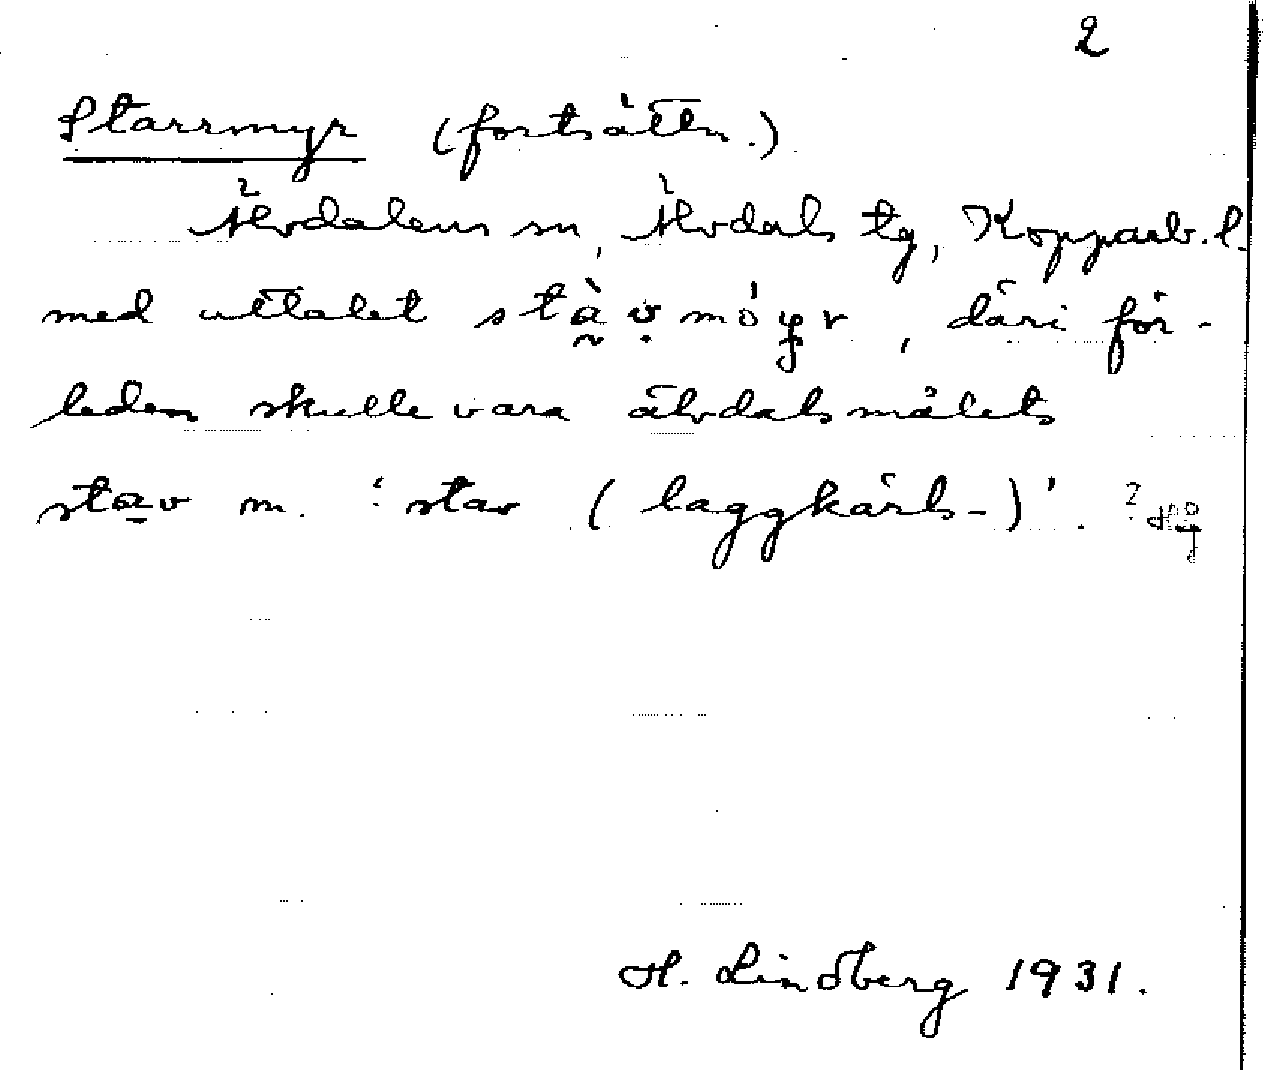 2
Starrmyr (fortsättn.)
Älvdalens sn, Älvdals tg, Kopparb. l.
med uttalet stàṿmóyr, däri för-
leden skulle vara älvdalsmålets
stav m. 'stav (laggkärls-)'. ?
H. Lindberg 1931.